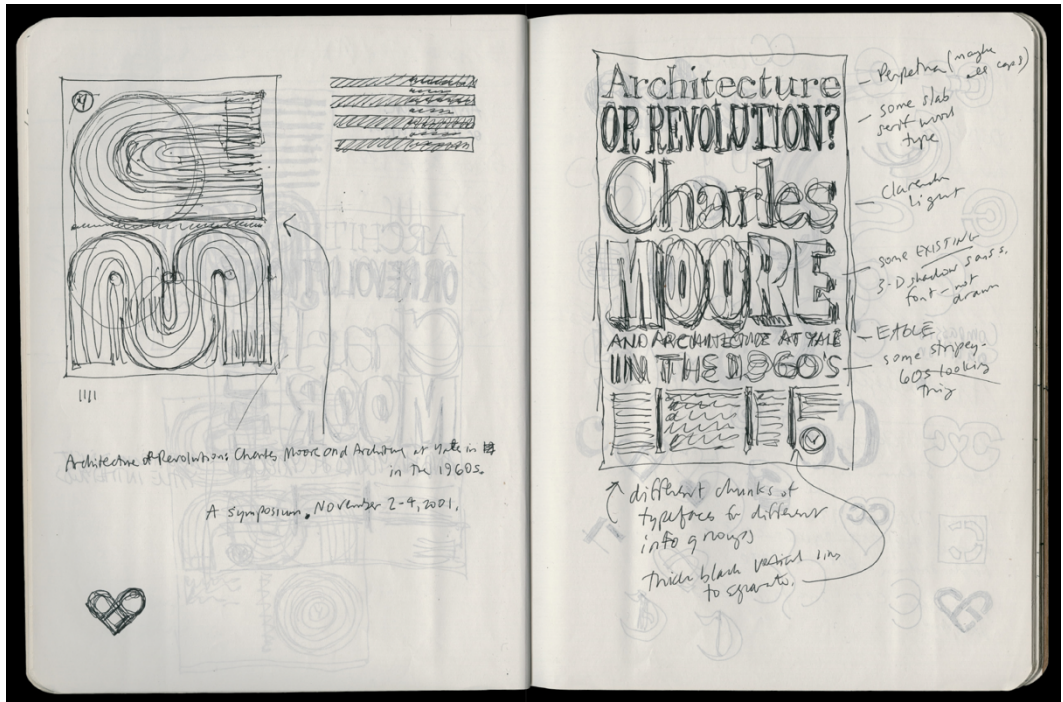 Architecture or Revolution: Charles Moore and Architecture at Yale in
in the 1960s.
A symposium. November 2-4, 2001.
Architecture
OR REVOLUTION?
Charles
MOORE
AND ARCHITECTURE AT YALE
IN THE 1960'S
Perpetua (maybe
all caps)
some slab
serif wood
type
Clarendon
Light
some EXISTING
3-D shadow sans.
font - not
drawn
EAGLE
some stripey-
60s looking
thing
different chunks of
typefaces for different
info groups
thick black vertical lines
to separate.